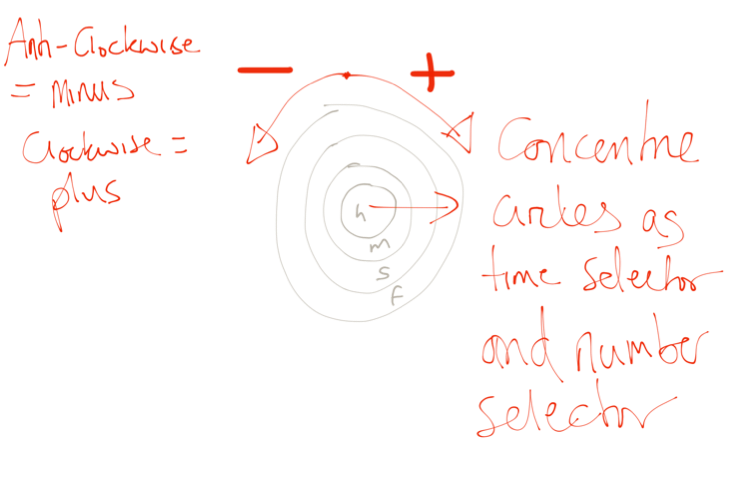 Anti-Clockwise
= Minus
Clockwise =
plus
− +
h
m
s
f
Concentric
circles as
time selector
and number
selector